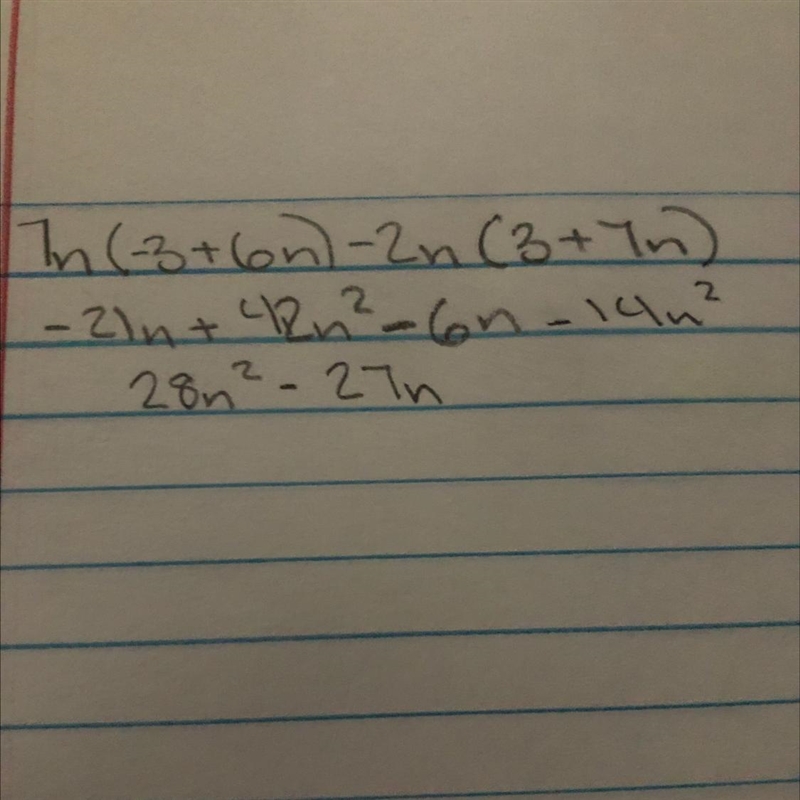 7n(-3+6n)-2n(3+7n)
-21n+42n²-6n-14n²
28n²-27n